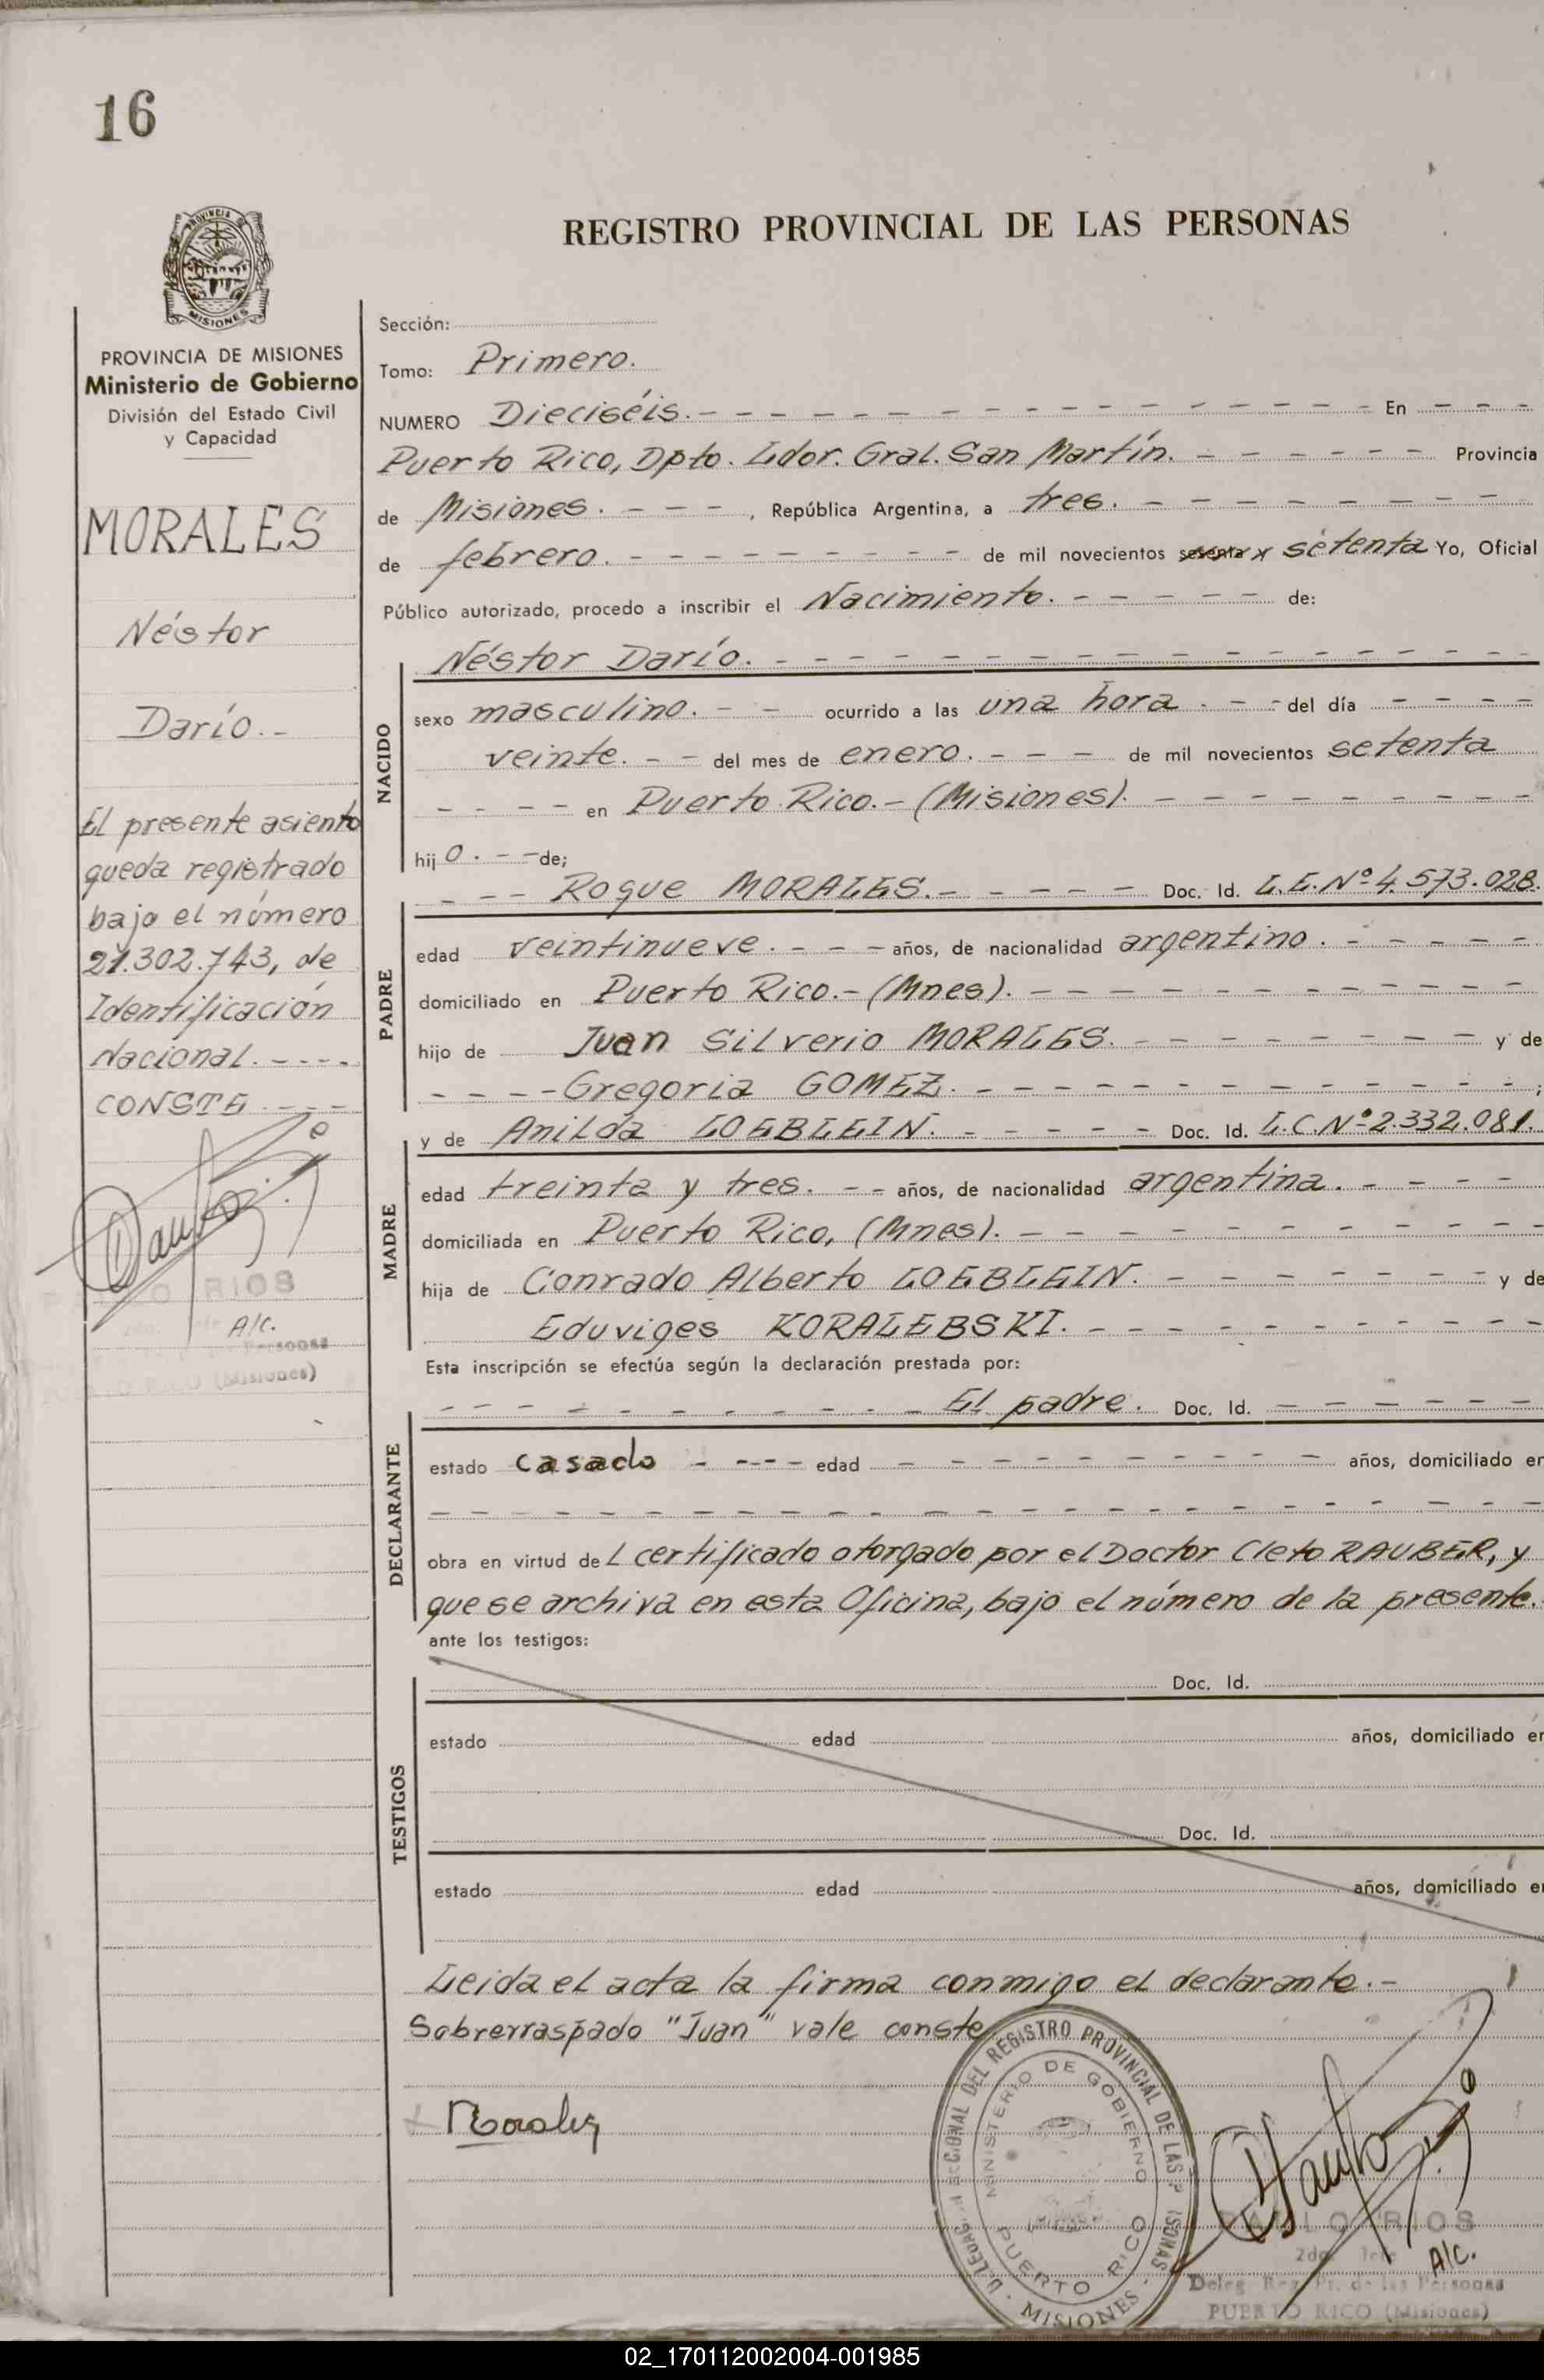 16
REGISTRO PROVINCIAL DE LAS PERSONAS
PROVINCIA DE MISIONES
Ministerio de Gobierno
División del Estado Civil
y Capacidad
MORALES
Néstor
Darío.-
El presente asiento
queda registrado
bajo el número
21.302.743, de
Identificación
Nacional.----
CONSTE.---
RIOS
A/C.
Personas
(Misiones)
Sección:
Tomo: Primero.
NUMERO Dieciséis. En
Puerto Rico, Dpto. Ldor. Gral. San Martín. Provincia
de Misiones. , República Argentina, a tres.
de febrero. de mil novecientos sesenta y setenta Yo, Oficial
Público autorizado, procedo a inscribir el Nacimiento. de:
Néstor Darío.
NACIDO
sexo masculino. ocurrido a las una hora. del día
veinte. del mes de enero. de mil novecientos setenta
en Puerto Rico.-(Misiones).
hijo. de;
Roque MORALES. Doc. Id. L.E.Nº4.573.028.
PADRE
edad veintinueve. años, de nacionalidad argentino.
domiciliado en Puerto Rico.-(Mnes).
hijo de Juan Silverio MORALES. y de
Gregoria GOMEZ. ;
y de Anilda LOEBLEIN. Doc. Id. L.C.Nº2.332.081.
MADRE
edad treinta y tres. años, de nacionalidad argentina.
domiciliada en Puerto Rico, (Mnes).
hija de Conrado Alberto LOEBLEIN. y de
Eduviges KORALEBSKI.
Esta inscripción se efectúa según la declaración prestada por:
El padre. Doc. Id.
DECLARANTE
estado casado edad años, domiciliado en
obra en virtud del certificado otorgado por el Doctor Cleto RAUBER, y
que se archiva en esta Oficina, bajo el número de la presente.
ante los testigos:
Doc. Id.
TESTIGOS
estado edad años, domiciliado en
Doc. Id.
estado edad años, domiciliado en
Leida el acta la firma conmigo el declarante.-
Sobrerraspado "Juan" vale conste
Morales
REGISTRO PROVINCIAL DE LAS
MINISTERIO DE GOBIERNO
PUERTO RICO
- MISIONES -
RIOS
2do. Jefe A/C.
Deleg. Reg. Pr. de las Personas
PUERTO RICO (Misiones)
02_170112002004-001985